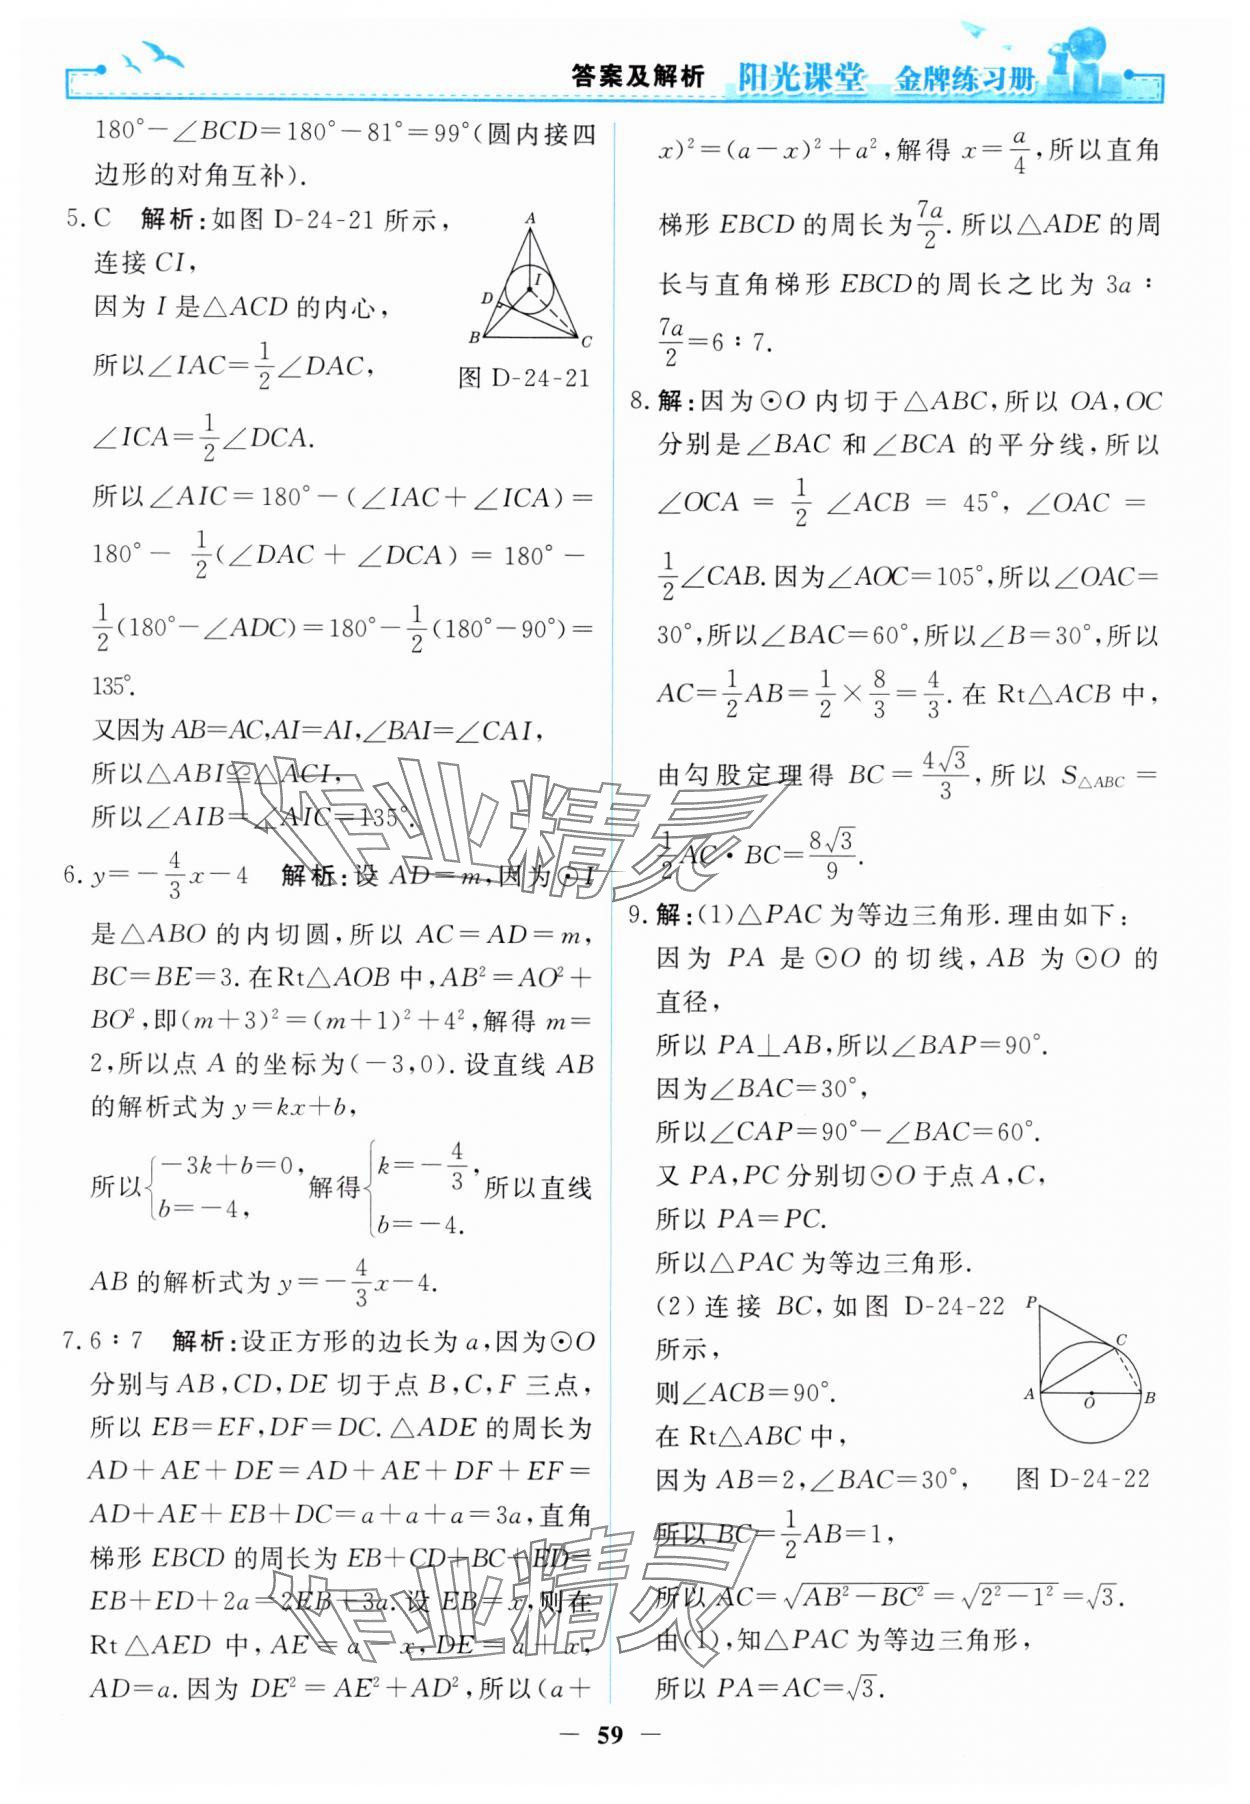 答案及解析 阳光课堂 金牌练习册
180°－∠BCD＝180°－81°＝99°(圆内接四
边形的对角互补).
5. C 解析:如图 D-24-21 所示,
连接 CI,
因为 I 是△ACD 的内心,
所以∠IAC＝1/2∠DAC,
A
I
D
B
C
图 D-24-21
∠ICA＝1/2∠DCA.
所以∠AIC＝180°－(∠IAC＋∠ICA)＝
180°－1/2(∠DAC＋∠DCA)＝180°－
1/2(180°－∠ADC)＝180°－1/2(180°－90°)＝
135°.
又因为 AB＝AC,AI＝AI,∠BAI＝∠CAI,
所以△ABI≌△ACI,
所以∠AIB＝∠AIC＝135°.
6. y＝－4/3x－4 解析:设 AD＝m,因为⊙I
是△ABO 的内切圆,所以 AC＝AD＝m,
BC＝BE＝3.在Rt△AOB 中,AB²＝AO²＋
BO²,即(m＋3)²＝(m＋1)²＋4²,解得 m＝
2,所以点 A 的坐标为(－3,0).设直线 AB
的解析式为 y＝kx＋b,
所以{－3k＋b＝0, b＝－4, 解得{k＝－4/3, b＝－4. 所以直线
AB 的解析式为 y＝－4/3x－4.
7. 6∶7 解析:设正方形的边长为 a,因为⊙O
分别与 AB,CD,DE 切于点 B,C,F 三点,
所以 EB＝EF,DF＝DC.△ADE 的周长为
AD＋AE＋DE＝AD＋AE＋DF＋EF＝
AD＋AE＋EB＋DC＝a＋a＋a＝3a,直角
梯形 EBCD 的周长为 EB＋CD＋BC＋ED＝
EB＋ED＋2a＝2EB＋3a.设 EB＝x,则在
Rt△AED 中,AE＝a－x,DE＝a＋x,
AD＝a.因为 DE²＝AE²＋AD²,所以(a＋
x)²＝(a－x)²＋a²,解得 x＝a/4,所以直角
梯形 EBCD 的周长为7a/2.所以△ADE 的周
长与直角梯形 EBCD的周长之比为 3a∶
7a/2＝6∶7.
8. 解:因为⊙O 内切于△ABC,所以 OA,OC
分别是∠BAC 和∠BCA 的平分线,所以
∠OCA＝1/2∠ACB＝45°,∠OAC＝
1/2∠CAB.因为∠AOC＝105°,所以∠OAC＝
30°,所以∠BAC＝60°,所以∠B＝30°,所以
AC＝1/2AB＝1/2×8/3＝4/3.在 Rt△ACB 中,
由勾股定理得 BC＝4√3/3,所以 S△ABC＝
1/2AC·BC＝8√3/9.
9. 解:(1)△PAC 为等边三角形.理由如下:
因为 PA 是⊙O 的切线,AB 为⊙O 的
直径,
所以 PA⊥AB,所以∠BAP＝90°.
因为∠BAC＝30°,
所以∠CAP＝90°－∠BAC＝60°.
又 PA,PC 分别切⊙O 于点 A,C,
所以 PA＝PC.
所以△PAC 为等边三角形.
(2)连接 BC,如图 D-24-22
所示,
则∠ACB＝90°.
在 Rt△ABC 中,
因为 AB＝2,∠BAC＝30°,
P
C
A
O
B
图 D-24-22
所以 BC＝1/2AB＝1,
所以 AC＝√(AB²－BC²)＝√(2²－1²)＝√3.
由(1),知△PAC 为等边三角形,
所以 PA＝AC＝√3.
作业精灵
作业精灵
— 59 —